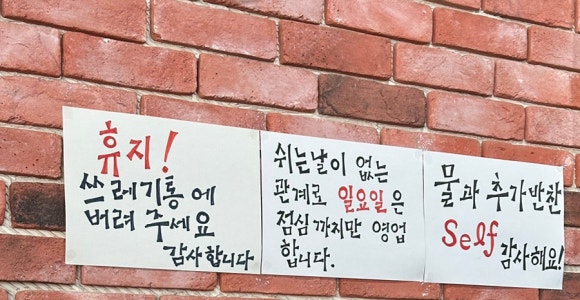 휴지!
쓰레기통에
버려 주세요
감사합니다
쉬는날이 없는
관계로 일요일은
점심까지만 영업
합니다.
물과 추가반찬
Self
감사해요!